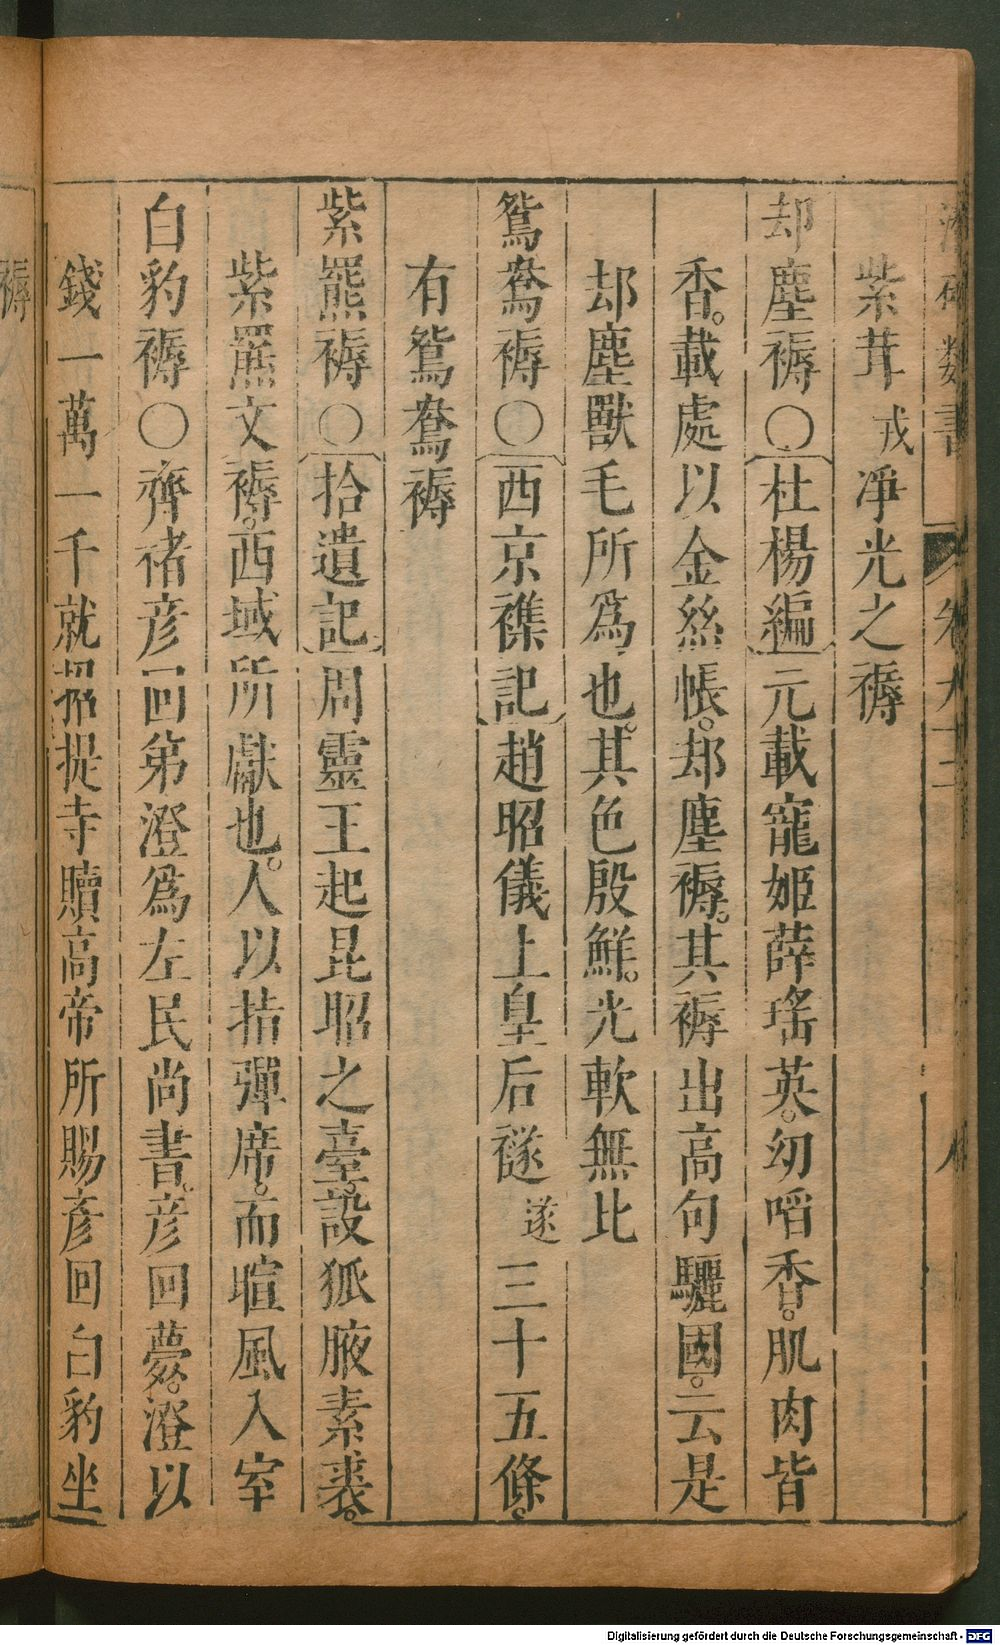 紫茸戎凈光之褥
却塵褥○杜楊編元載寵姬薛瑤英。幼㗖香。肌肉皆
香。載處以金絲帳。却塵褥。其褥出高句驪國。云是
却塵獸毛所爲也。其色殷鮮。光軟無比
鴛鴦褥○西京襍記趙昭儀上皇后襚遂三十五條。
有鴛鴦褥
紫羆褥○拾遺記周靈王起昆昭之臺設狐腋素裘。
紫羆文褥。西域所獻也。人以指彈席。而暄風入室
白豹褥○齊禇彥回第澄爲左民尚書。彥回薨。澄以
錢一萬一千就招提寺贖高帝所賜彥回白豹坐
褥
Digitalisierung gefördert durch die Deutsche Forschungsgemeinschaft - DFG